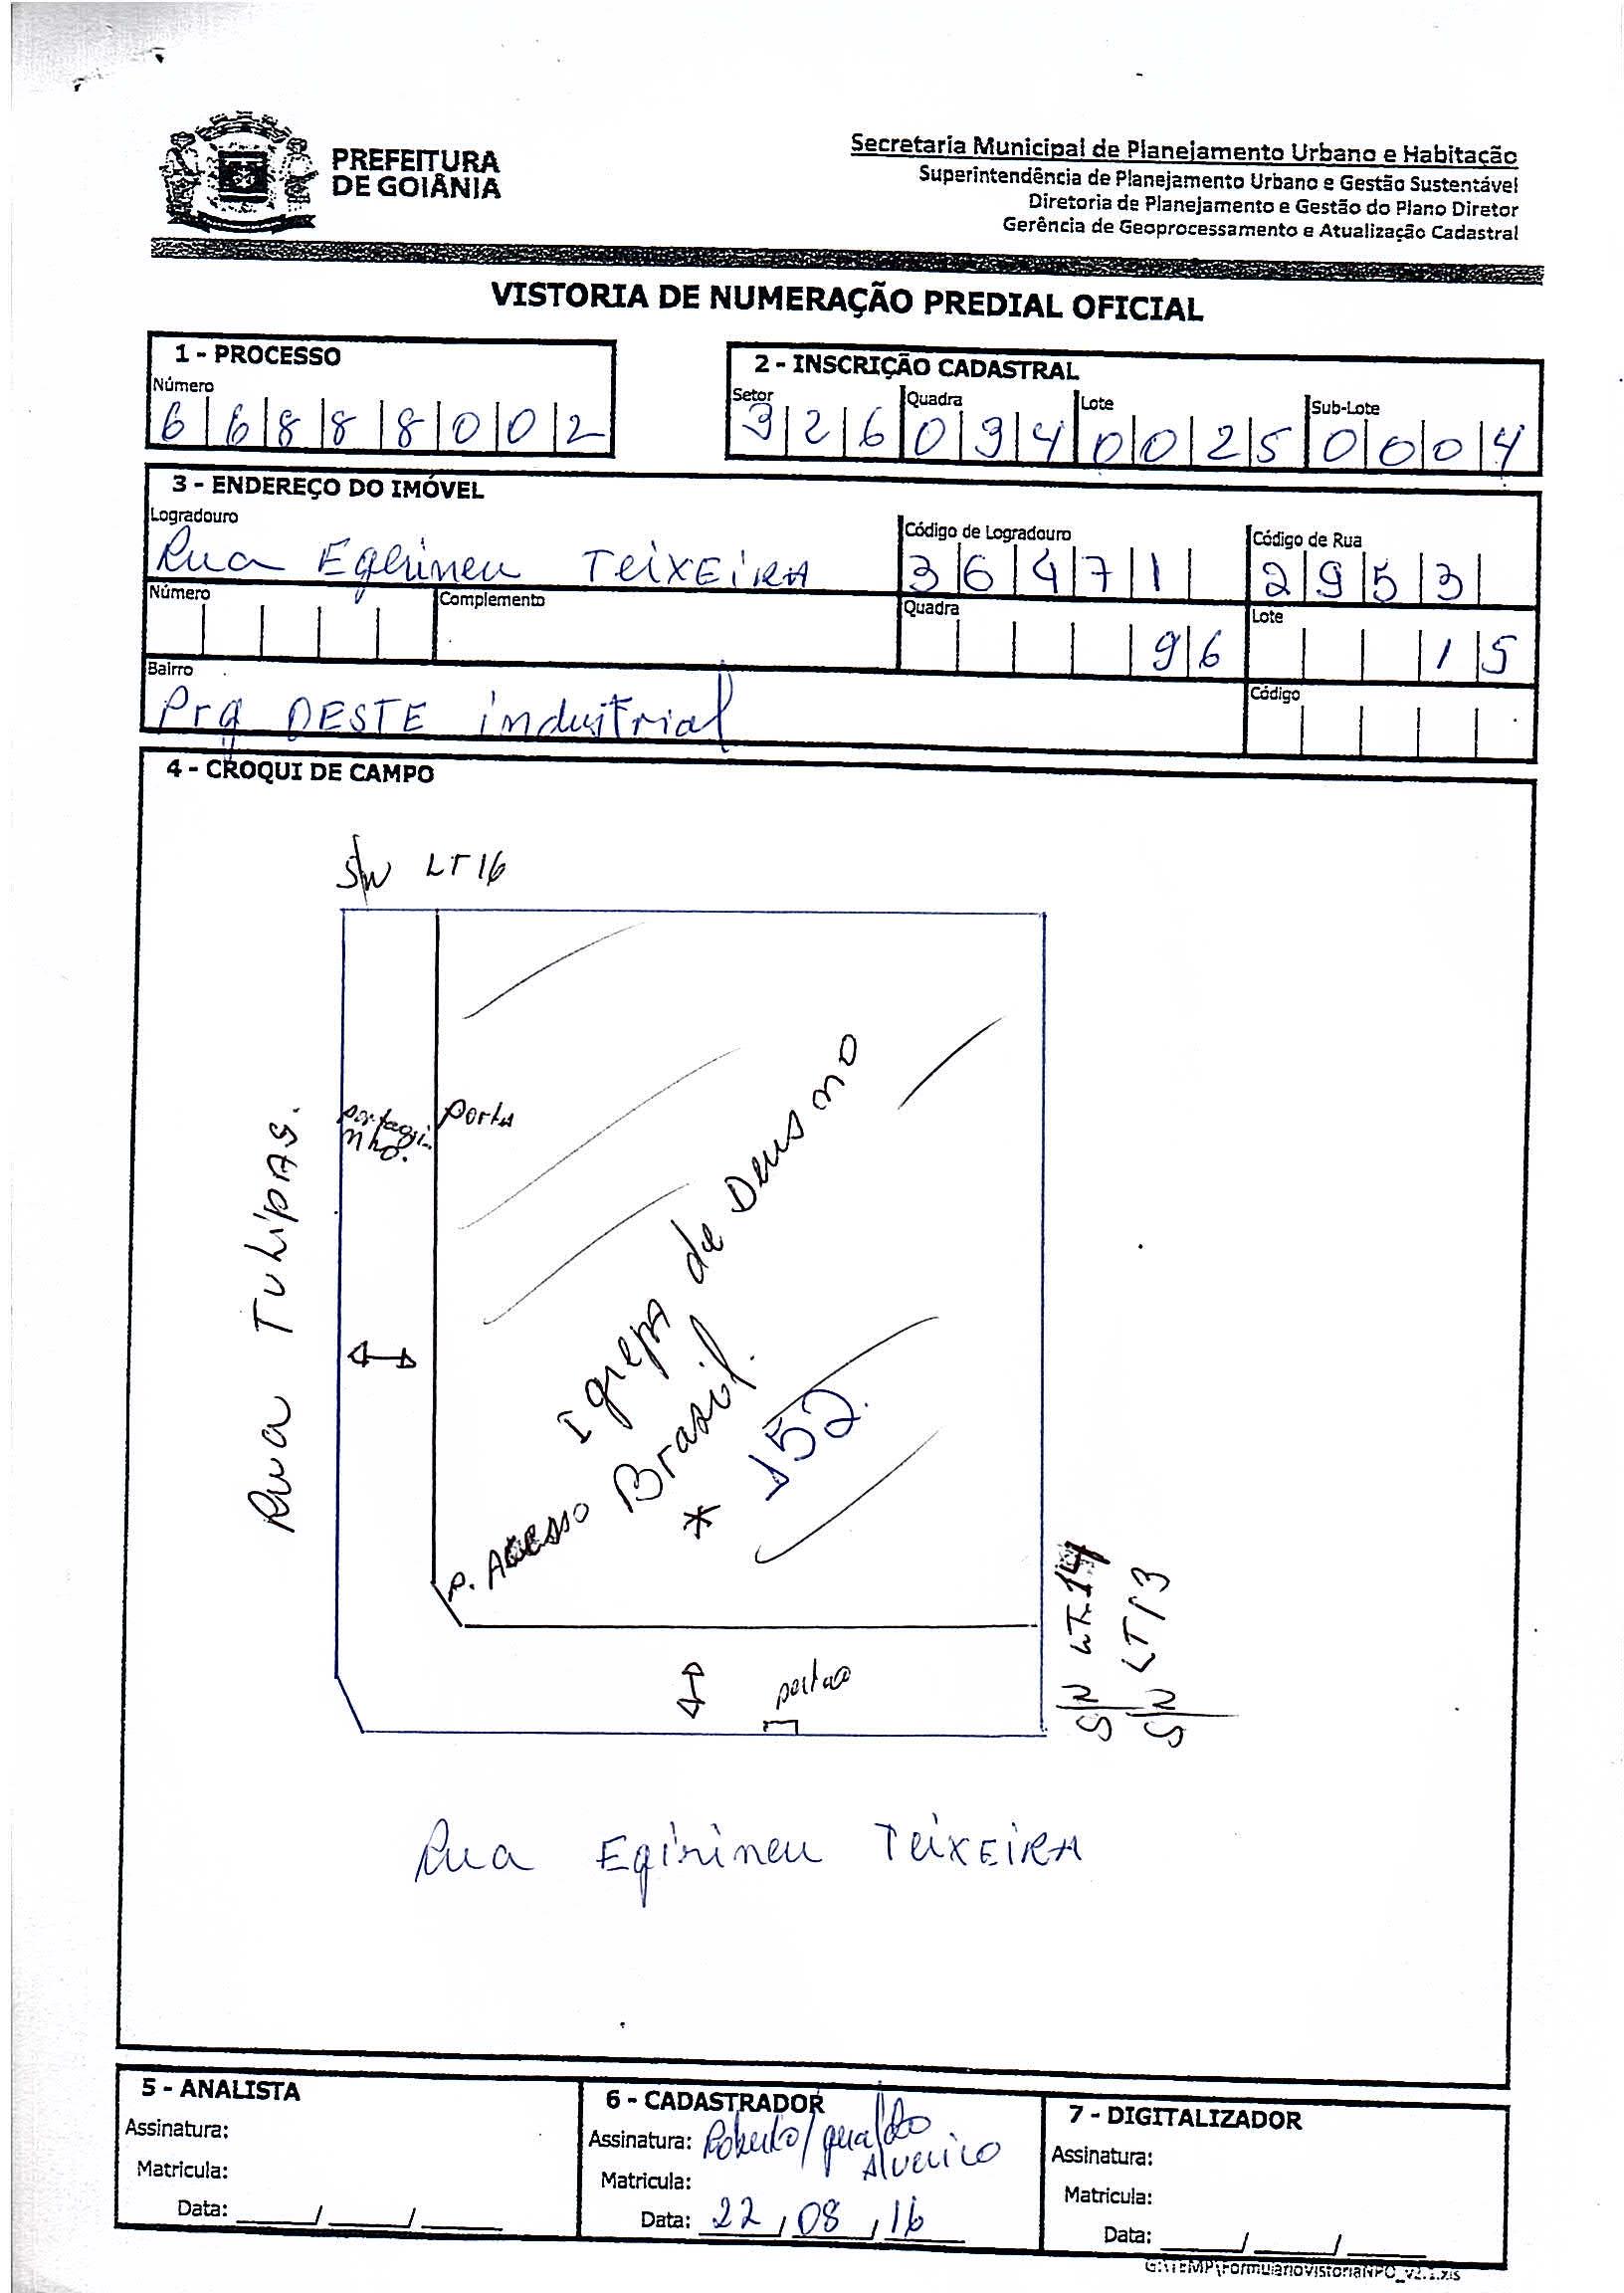 PREFEITURA
DE GOIÂNIA
Secretaria Municipal de Planejamento Urbano e Habitação
Superintendência de Planejamento Urbano e Gestão Sustentável
Diretoria de Planejamento e Gestão do Plano Diretor
Gerência de Geoprocessamento e Atualização Cadastral
VISTORIA DE NUMERAÇÃO PREDIAL OFICIAL
1 - PROCESSO
Número
6 6 8 8 8 0 0 2
2 - INSCRIÇÃO CADASTRAL
Setor Quadra Lote Sub-Lote
3 2 6 0 9 4 0 0 2 5 0 0 0 4
3 - ENDEREÇO DO IMÓVEL
Logradouro Código de Logradouro Código de Rua
Rua Egerineu TEiXEiRA 3 6 4 7 1 2 9 5 3
Número Complemento Quadra Lote
9 6 1 5
Bairro Código
Prq OESTE industrial
4 - CROQUI DE CAMPO
S/N LT 16
Rua TuLipAS.
portaozi-
nho.
porta
Igreja de Deus no
Brasil.
* 152.
P. Acesso
portao
S/N LT-14
S/N LT13
Rua Egirineu TEiXEiRA
5 - ANALISTA
Assinatura:
Matricula:
Data: ____/____/____
6 - CADASTRADOR
Assinatura: Roberto/geraldo
Matricula:
Data: 22/08/16
7 - DIGITALIZADOR
Assinatura:
Matricula:
Data: ____/____/____
G:\TEMP\FormularioVistoriaNPO_v2.1.xls